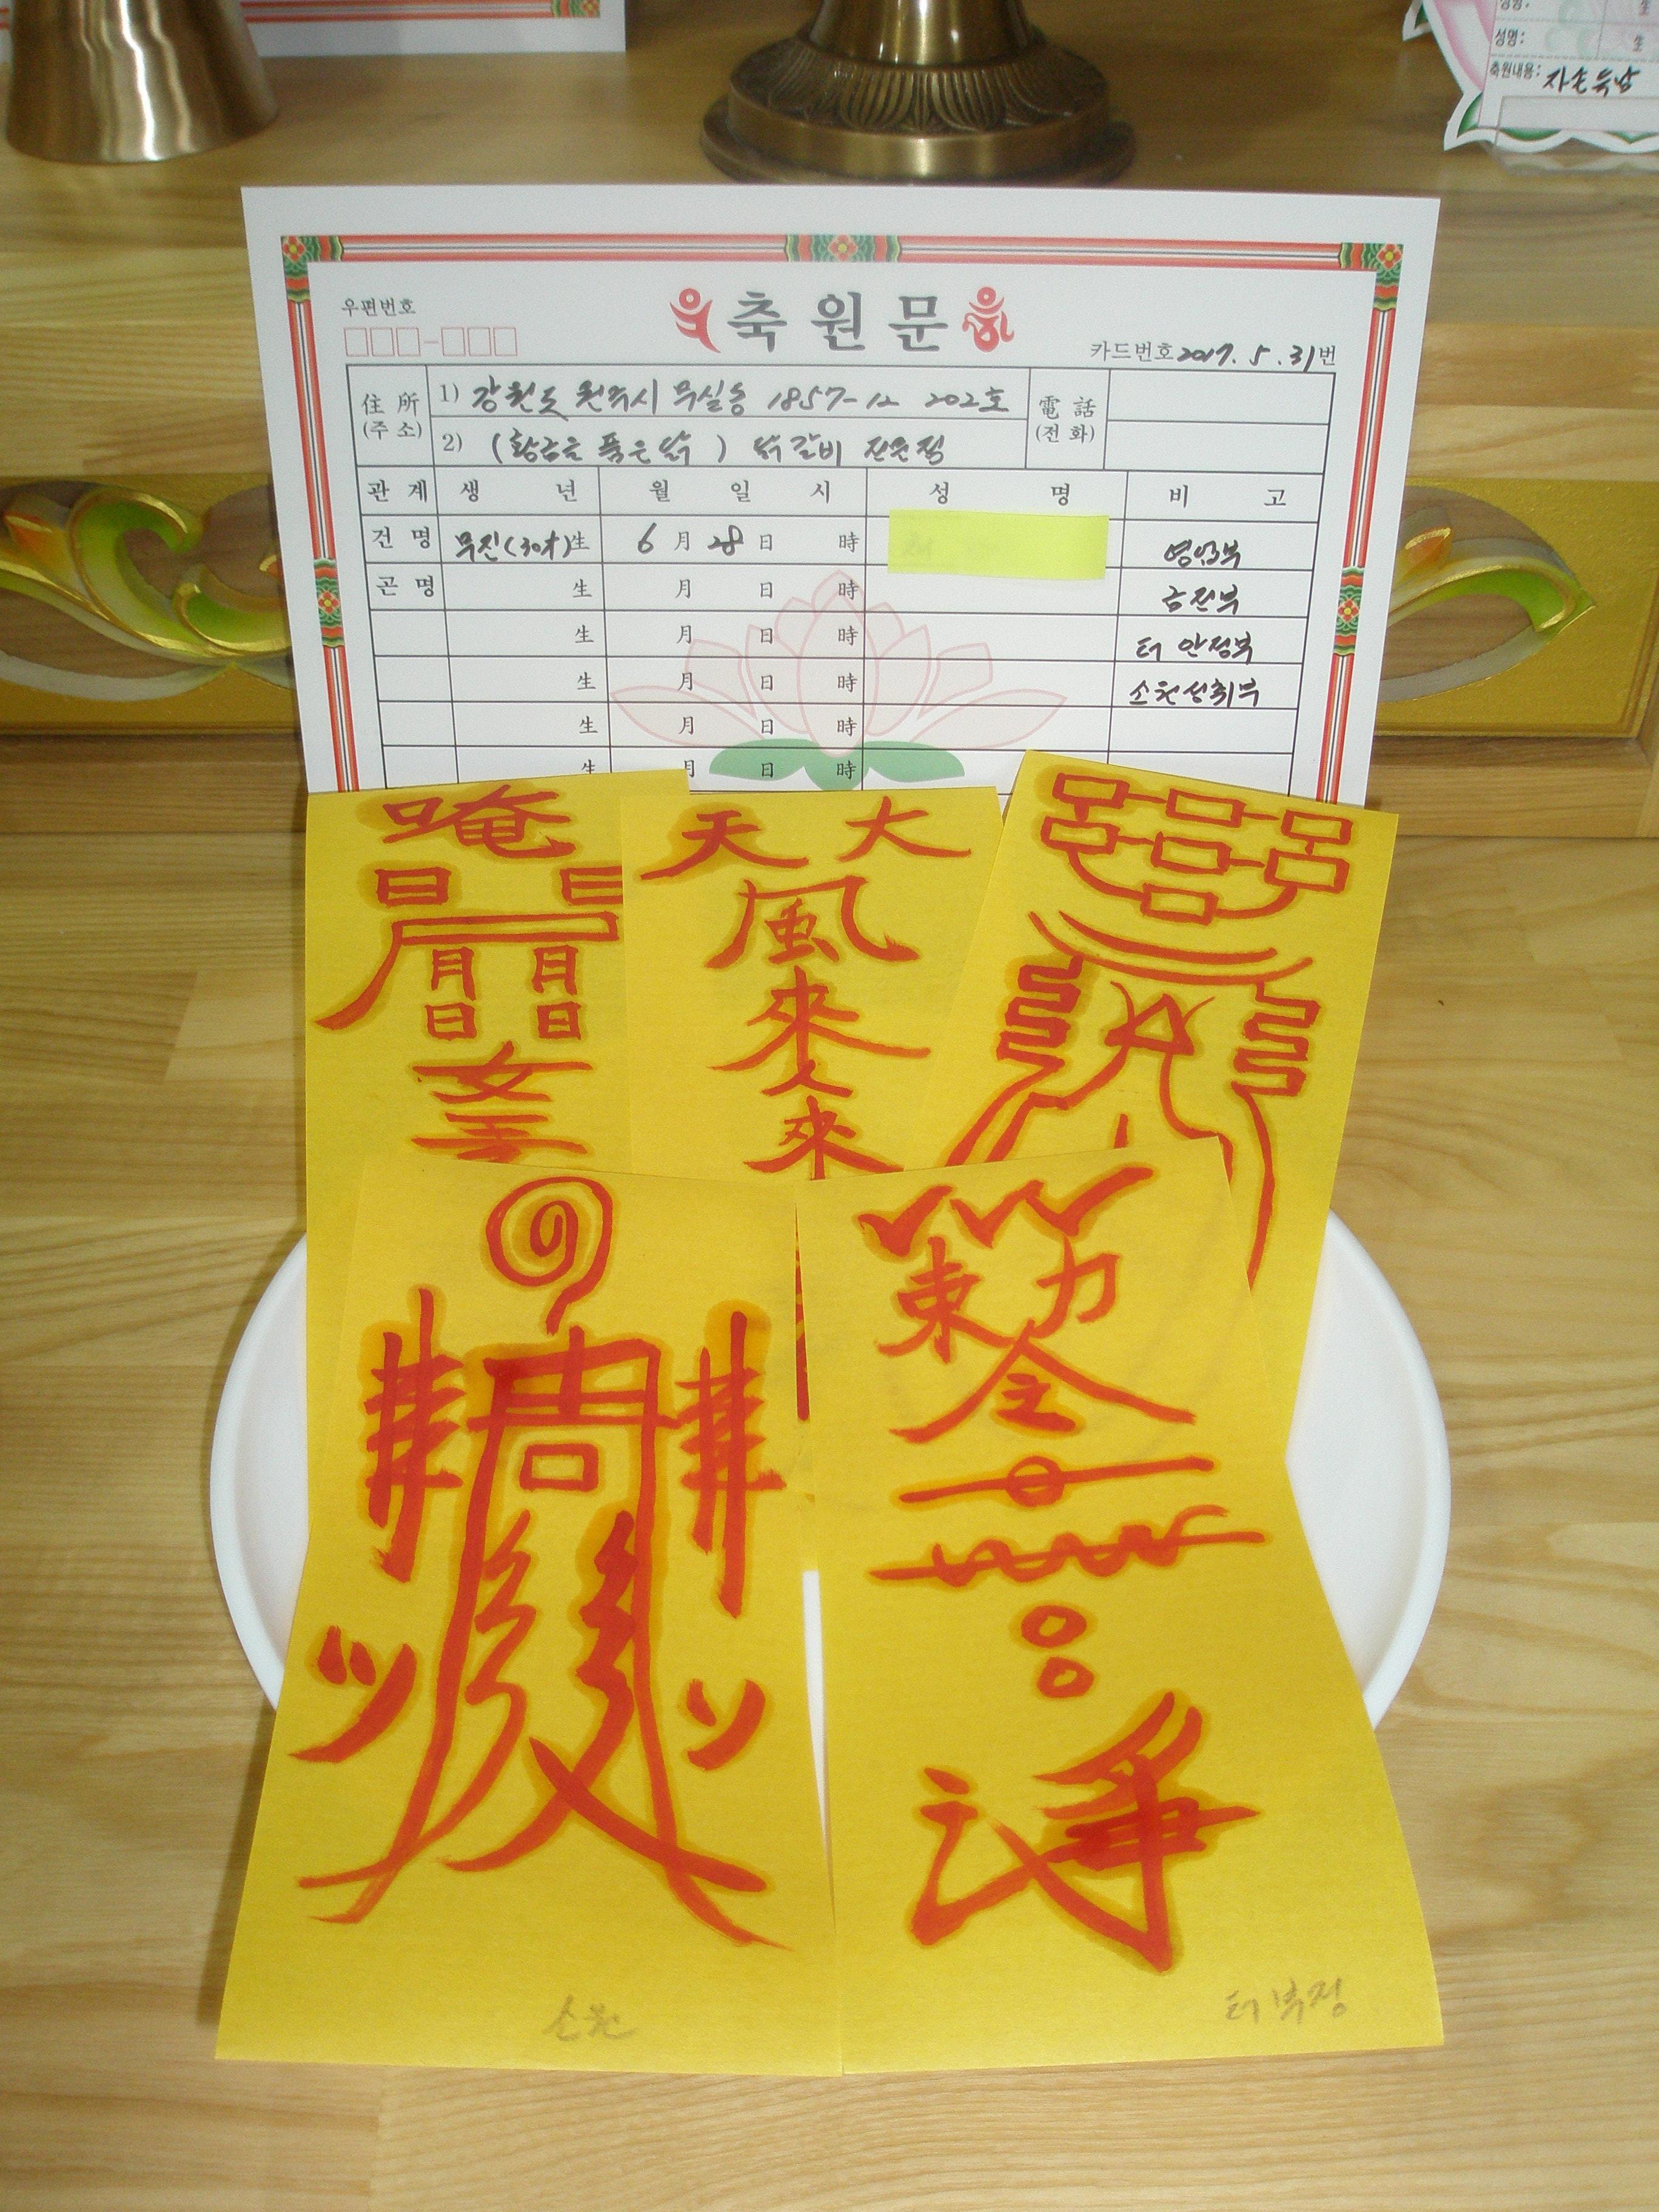 성명: 生
축원내용: 자손득남
우편번호
축원문
카드번호 2017. 5. 31 번
住所 (주소) 1) 강원도 원주시 무실동 1857-12 202호 電話 (전화)
2) (황금을 품은 닭) 닭갈비 전문점
관계 생년 월 일 시 성명 비고
건명 무진(30才)生 6月 28日 時 영업부
곤명 生 月 日 時 금전부
生 月 日 時 터 안정부
生 月 日 時 소원성취부
生 月 日 時
生 月 日 時
唵
日 日
月 月
日 日
天 大
風
來
來
東 力
소원
터 부정